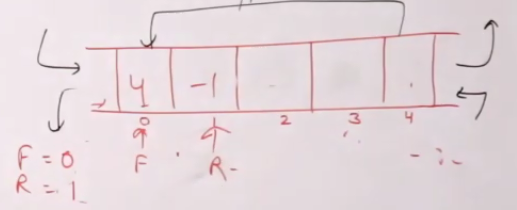 4 -1
0 1 2 3 4
F = 0 F R
R = 1